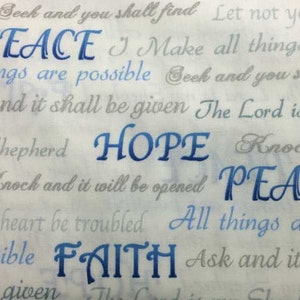 Seek and you shall find Let not yo
EACE I Make all things
ngs are possible Seek and you s
and it shall be given The Lord is
Shepherd HOPE Knoc
Knock and it will be opened PEA
heart be troubled All things a
ible FAITH Ask and it
given The Lord is